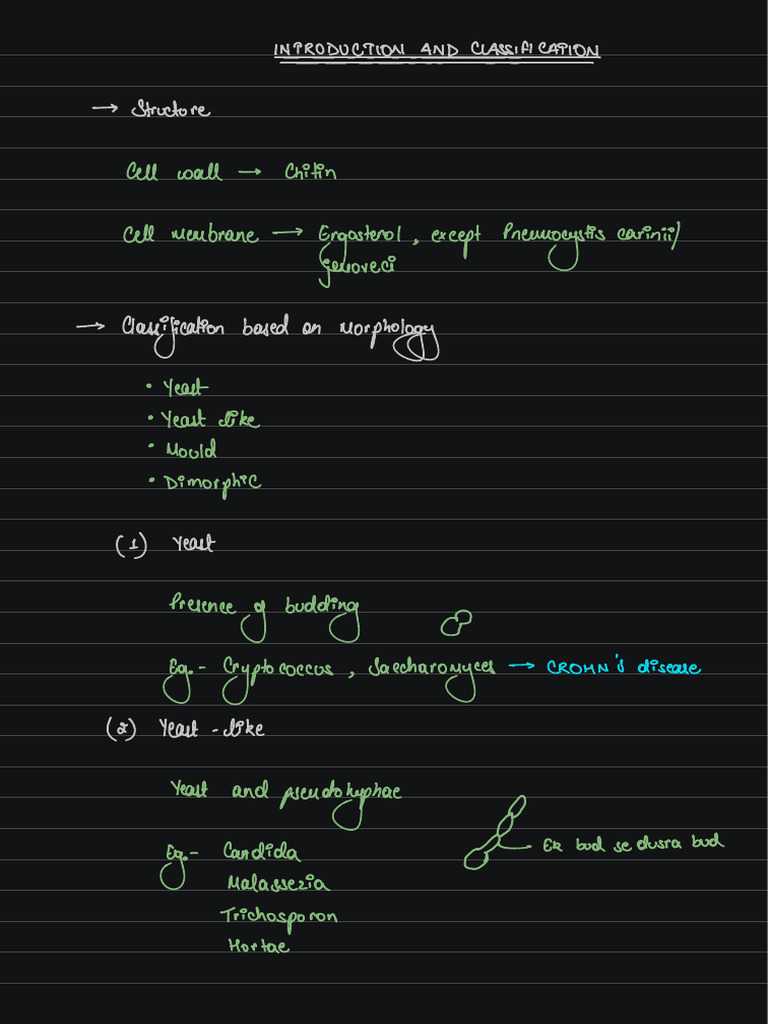 INTRODUCTION AND CLASSIFICATION
→ Structure
Cell wall → Chitin
Cell membrane → Ergosterol, except Pneumocystis carinii/
jeroveci
→ Classification based on Morphology
• Yeast
• Yeast like
• Mould
• Dimorphic
(1) Yeast
Presence of budding
Eg.- Cryptococcus, Saccharomyces → CROHN's disease
(2) Yeast-like
Yeast and pseudohyphae
Ek bud se dusra bud
Eg.- Candida
Malassezia
Trichosporon
Hortae